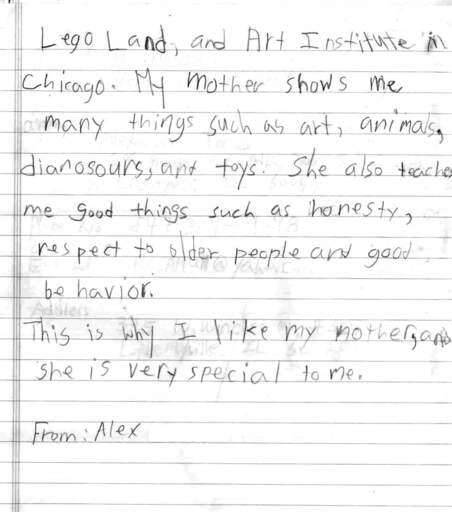 Lego Land, and Art Institute in
Chicago. My mother shows me
many things such as art, animals,
dianosours, and toys. She also teaches
me good things such as honesty,
respect to older people and good
behavior.
This is why I like my mother, and
she is very special to me.
From: Alex